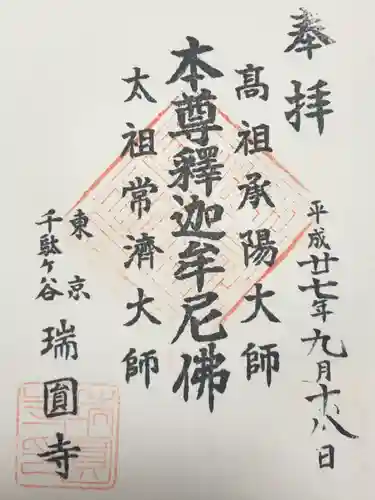 奉拝
平成廿七年九月十八日
高祖承陽大師
本尊釋迦牟尼佛
太祖常濟大師
東京
千駄ヶ谷
瑞圓寺